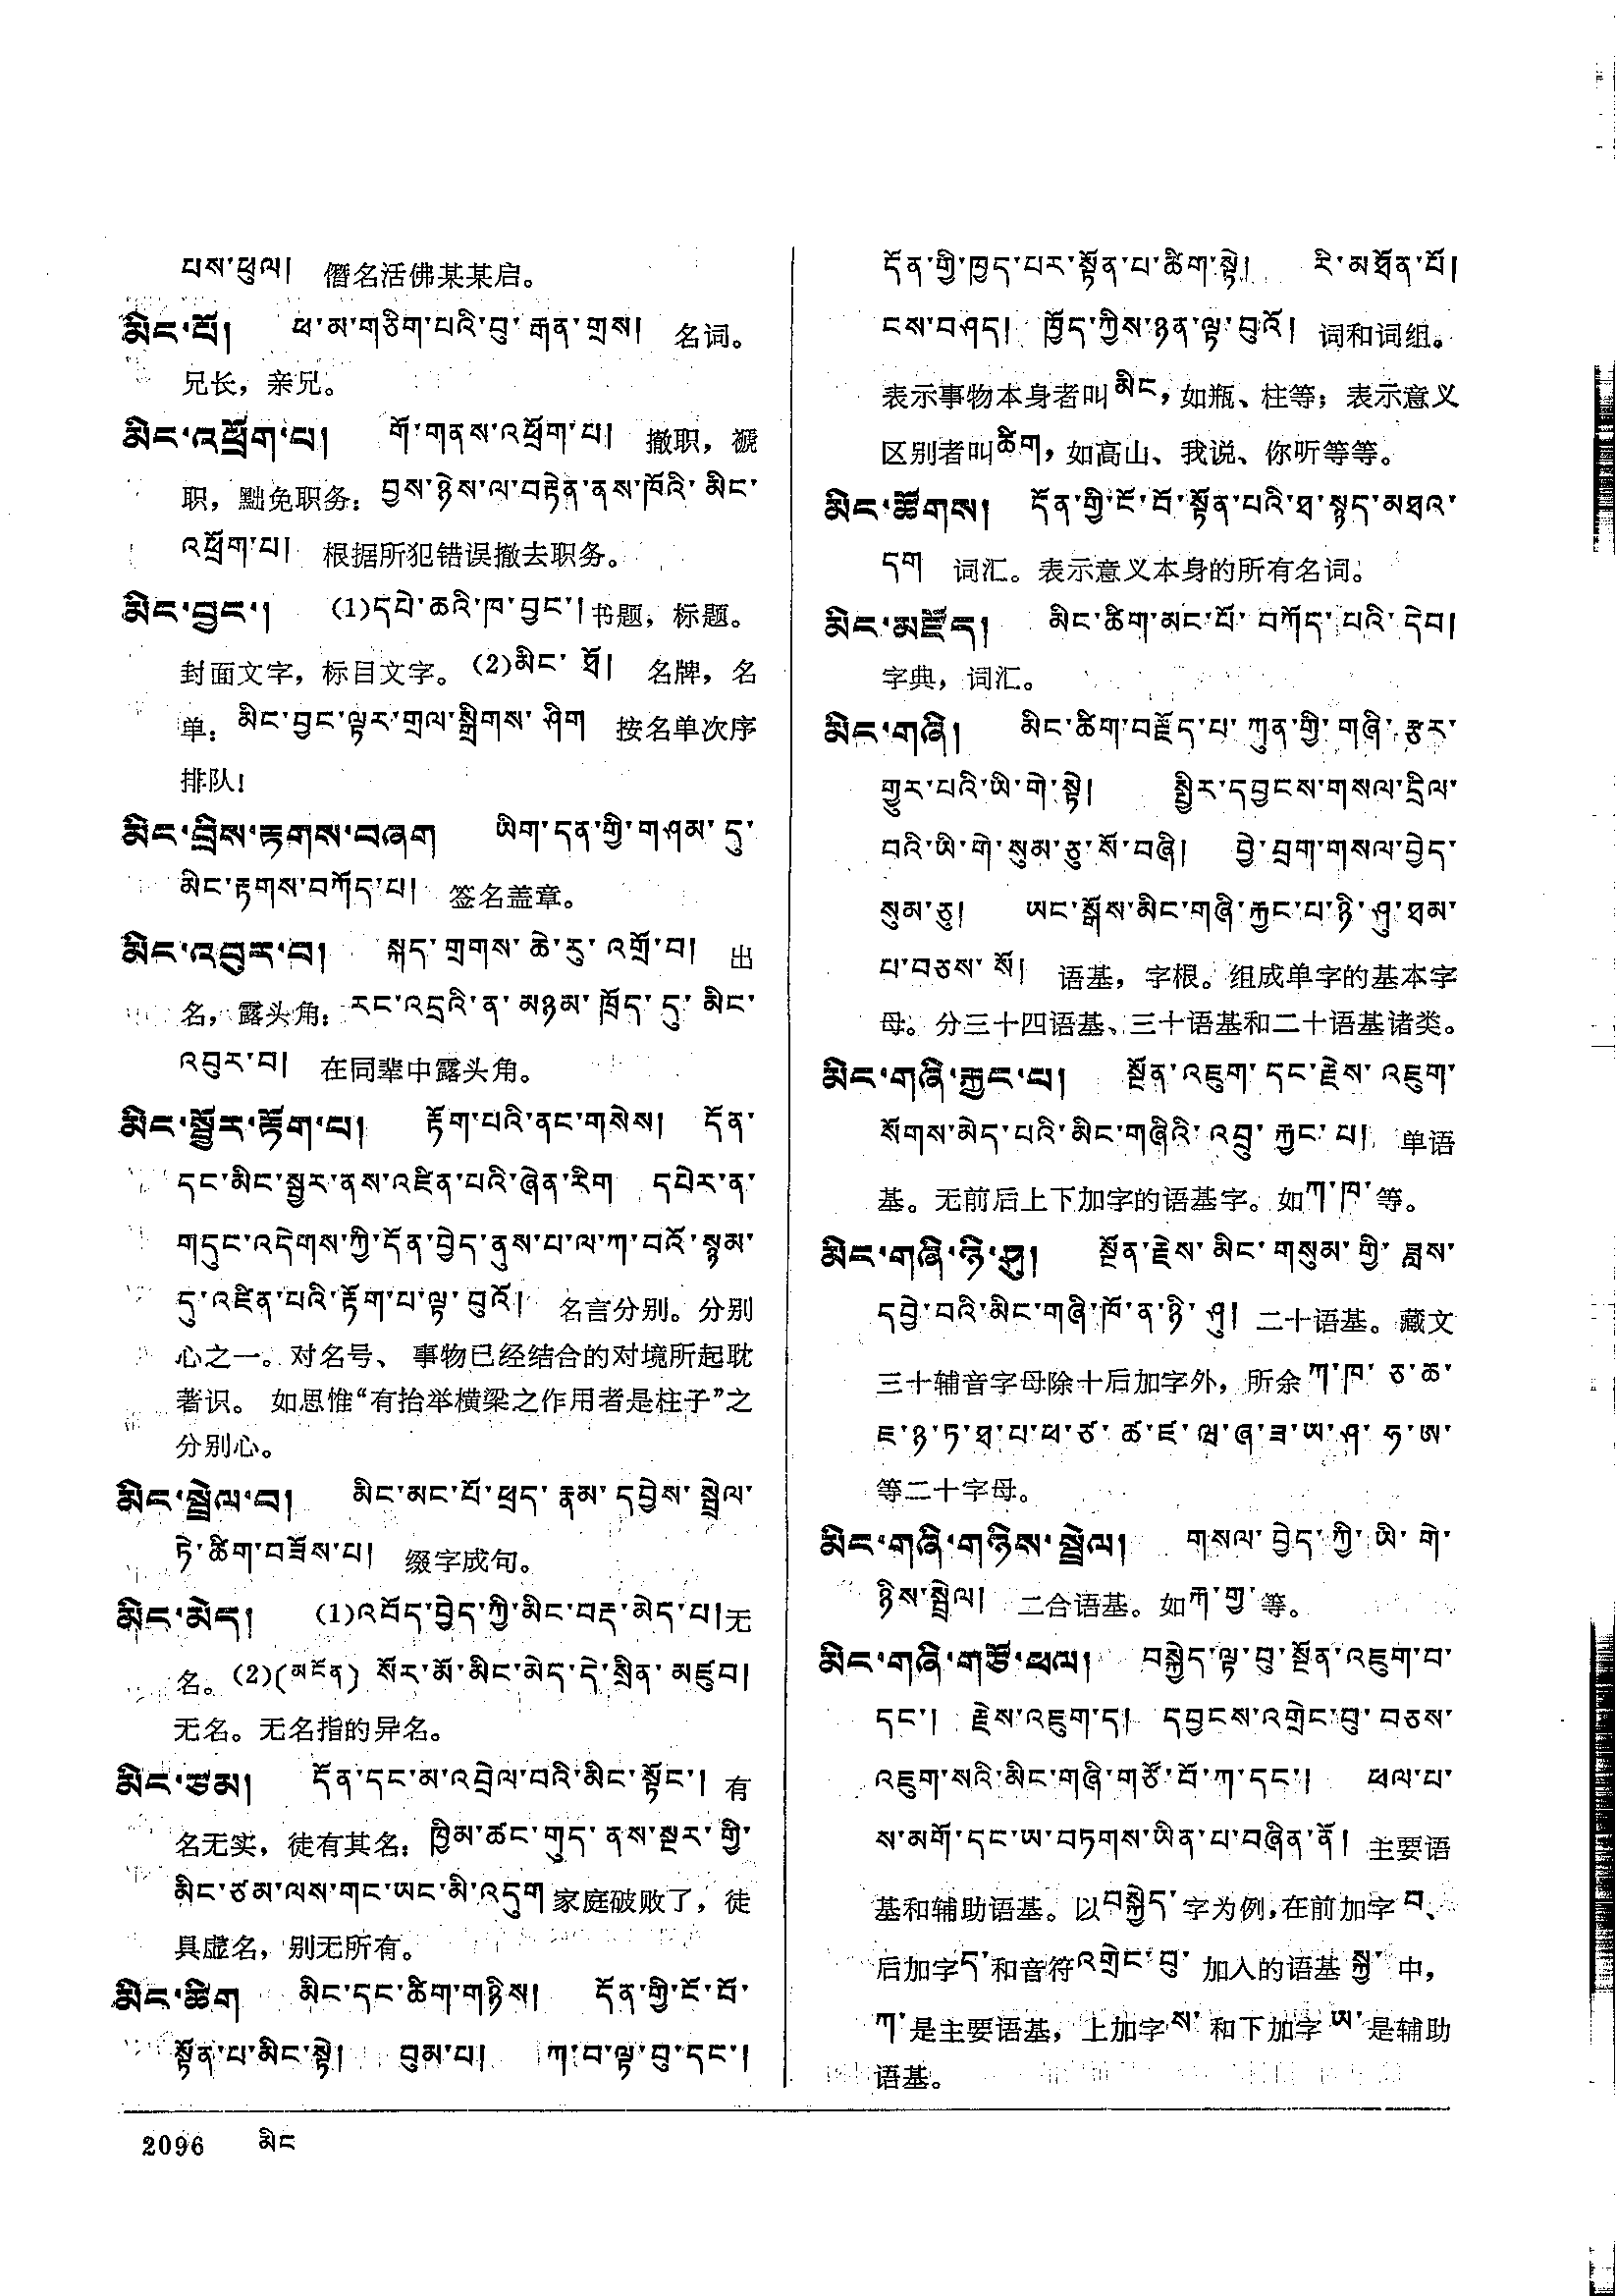 པས་ཕུལ། 僭名活佛某某启。
མིང་པོ། ཕ་མ་གཅིག་པའི་བུ་རྒན་གྲས། 名词。
兄长，亲兄。
མིང་འཕྲོག་པ། གོ་གནས་འཕྲོག་པ། 撤职，褫
职，黜免职务：བྱས་ཉེས་ལ་བརྟེན་ནས་ཁོའི་མིང་
འཕྲོག་པ། 根据所犯错误撤去职务。
མིང་བྱང་། (1)དཔེ་ཆའི་ཁ་བྱང་།书题，标题。
封面文字，标目文字。(2)མིང་ཐོ། 名牌，名
单：མིང་བྱང་ལྟར་གྲལ་སྒྲིགས་ཤིག 按名单次序
排队！
མིང་བྲིས་རྟགས་བཞག ཡིག་དན་གྱི་གཤམ་དུ་
མིང་རྟགས་བཀོད་པ། 签名盖章。
མིང་འབུར་བ། སྐད་གྲགས་ཆེ་རུ་འགྲོ་བ། 出
名，露头角：རང་འདྲའི་ན་མཉམ་ཁྲོད་དུ་མིང་
འབུར་བ། 在同辈中露头角。
མིང་སྦྱོར་རྟོག་པ། རྟོག་པའི་ནང་གསེས། དོན་
དང་མིང་སྦྱར་ནས་འཛིན་པའི་ཞེན་རིག དཔེར་ན་
གདུང་འདེགས་ཀྱི་དོན་བྱེད་ནུས་པ་ལ་ཀ་བའོ་སྙམ་
དུ་འཛིན་པའི་རྟོག་པ་ལྟ་བུའོ། 名言分别。分别
心之一。对名号、事物已经结合的对境所起耽
著识。如思惟“有抬举横梁之作用者是柱子”之
分别心。
མིང་སྦྲེལ་བ། མིང་མང་པོ་ཕྲད་རྣམ་དབྱེས་སྦྲེལ་
ཏེ་ཚིག་བཟོས་པ། 缀字成句。
མིང་མེད། (1)འབོད་བྱེད་ཀྱི་མིང་བརྡ་མེད་པ།无
名。(2)(མངོན) སོར་མོ་མིང་མེད་དེ་སྲིན་མཛུབ།
无名。无名指的异名。
མིང་ཙམ། དོན་དང་མ་འབྲེལ་བའི་མིང་སྟོང་། 有
名无实，徒有其名：ཁྱིམ་ཚང་གུད་ནས་སྔར་གྱི་
མིང་ཙམ་ལས་གང་ཡང་མི་འདུག 家庭破败了，徒
具虚名，别无所有。
མིང་ཚིག མིང་དང་ཚིག་གཉིས། དོན་གྱི་ངོ་བོ་
སྟོན་པ་མིང་སྟེ། བུམ་པ། ཀ་བ་ལྟ་བུ་དང་།
དོན་གྱི་ཁྱད་པར་སྟོན་པ་ཚིག་སྟེ། རི་མཐོན་པོ།
ངས་བཤད། ཁྱོད་ཀྱིས་ཉན་ལྟ་བུའོ། 词和词组。
表示事物本身者叫མིང，如瓶、柱等；表示意义
区别者叫ཚིག，如高山、我说、你听等等。
མིང་ཚོགས། དོན་གྱི་ངོ་བོ་སྟོན་པའི་ཐ་སྙད་མཐའ་
དག 词汇。表示意义本身的所有名词。
མིང་མཛོད། མིང་ཚིག་མང་པོ་བཀོད་པའི་དེབ།
字典，词汇。
མིང་གཞི། མིང་ཚིག་བརྗོད་པ་ཀུན་གྱི་གཞི་རྩར་
གྱུར་པའི་ཡི་གེ་སྟེ། སྤྱིར་དབྱངས་གསལ་དྲིལ་
བའི་ཡི་གེ་སུམ་ཅུ་སོ་བཞི། བྱེ་བྲག་གསལ་བྱེད་
སུམ་ཅུ། ཡང་སྒོས་མིང་གཞི་རྐྱང་པ་ཉི་ཤུ་ཐམ་
པ་བཅས་སོ། 语基，字根。组成单字的基本字
母。分三十四语基、三十语基和二十语基诸类。
མིང་གཞི་རྐྱང་པ། སྔོན་འཇུག་དང་རྗེས་འཇུག་
སོགས་མེད་པའི་མིང་གཞིའི་འབྲུ་རྐྱང་པ། 单语
基。无前后上下加字的语基字。如ཀ་ཁ་等。
མིང་གཞི་ཉི་ཤུ། སྔོན་རྗེས་མིང་གསུམ་གྱི་ཟླས་
དབྱེ་བའི་མིང་གཞི་ཁོ་ན་ཉི་ཤུ། 二十语基。藏文
三十辅音字母除十后加字外，所余ཀ་ཁ་ཅ་ཆ་
ཇ་ཉ་ཏ་ཐ་པ་ཕ་ཙ་ཚ་ཛ་ཝ་ཞ་ཟ་ཡ་ཤ་ཧ་ཨ་
等二十字母。
མིང་གཞི་གཉིས་སྦྲེལ། གསལ་བྱེད་ཀྱི་ཡི་གེ་
ཉིས་སྦྲེལ། 二合语基。如རྐ་གྱ་等。
མིང་གཞི་གཙོ་ཕལ། བསྐྱེད་ལྟ་བུ་སྔོན་འཇུག་བ་
དང་། རྗེས་འཇུག་ད། དབྱངས་འགྲེང་བུ་བཅས་
འཇུག་སའི་མིང་གཞི་གཙོ་བོ་ཀ་དང་། ཕལ་པ་
ས་མགོ་དང་ཡ་བཏགས་ཡིན་པ་བཞིན་ནོ། 主要语
基和辅助语基。以བསྐྱེད་字为例，在前加字བ、
后加字ད་和音符འགྲེང་བུ་加入的语基སྐྱ་中，
ཀ་是主要语基，上加字ས་和下加字ཡ་是辅助
语基。
2096 མིང